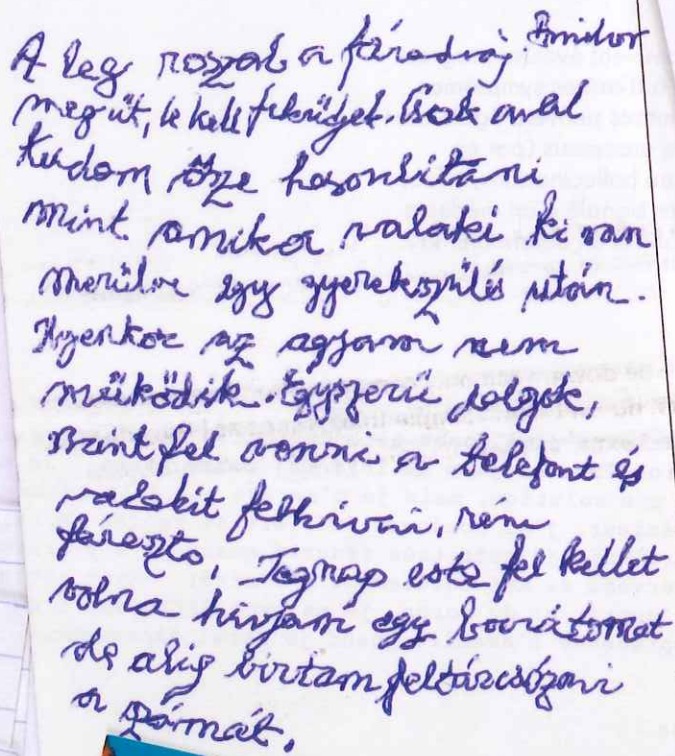 A leg roszab a fáradság. Amikor
megüt, le kell feküdjek. Csak avval
tudomösze hasonlitani,
mint amikor valaki ki van
merülve egy gyerekszülés után.
Ilyenkor az agyam nem
müködik. Egyszerü dolgok,
mint fel venni a telefont és
valakit felhivni, rem
fárasztó, Tegnap este fel kellet
volna hivjam egy barátomat
de alig birtam feltárcsázni
a számát.